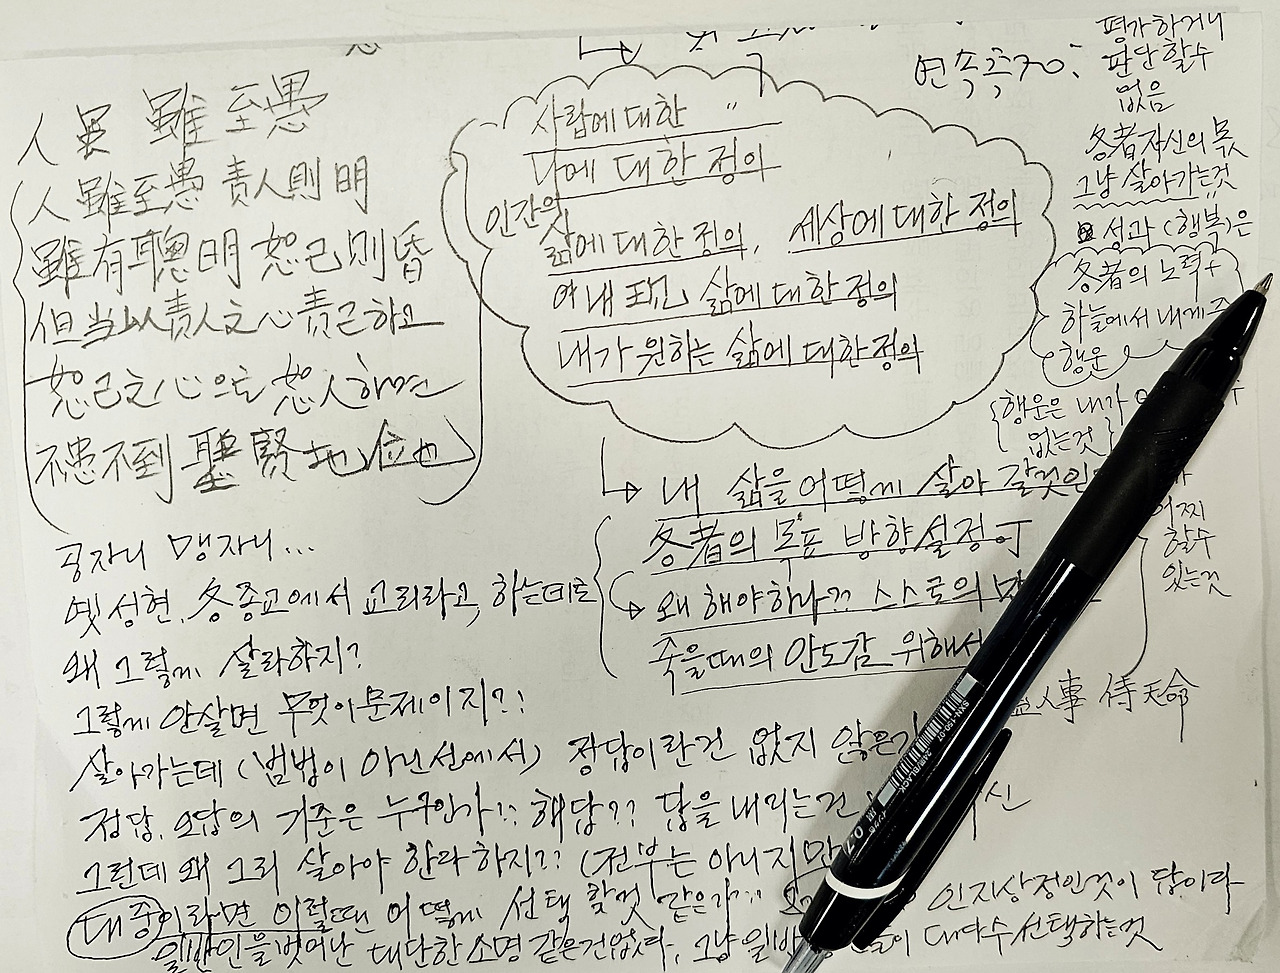 人 虽 雖 至愚
人 雖至愚 責人則明
雖有聰明 恕己則昏
但当以責人之心責己하고
恕己之心으로 恕人하면
不患不到 聖賢地位也
공자니 맹자니...
옛성현, 各종교에서 교리라고, 하는데로
왜 그렇게 살라하지?
그렇게 안살면 무엇이 문제이지?!
살아가는데 (범법이 아닌선에서) 정답이란건 없지 않은가
정답, 오답의 기준은 누구인가!? 해답?? 답을 내리는건
그런데 왜 그리 살아야 한라하지?? (전부는 아니지만
대중이라면 이럴땐 어떻게 선택 할것 같은가?? 인지상정인것이 답이라
일반인을 벗어난 대단한 소명 같은건없다, 그냥 일반 들이 대다수 선택하는것
사람에 대한 "
나에 대한 정의
인간의
삶에 대한 정의, 세상에 대한 정의
여내 삶에 대한 정의
내가 원하는 삶에 대한정의
내 삶을 어떻게 살아 갈것인
各者의 목표 방향설정
왜 해야하나?? 스스로의
죽을때의 안도감 위해서
人事 待天命
연속극70:
평가하거나
판단할수
없음
各者자신의 몫
그냥 살아가는것
성과 (행복)은
各者의 노력+
하늘에서 내게주
행운
행운은 내가
없는것
어찌
할수
있는것
0.7